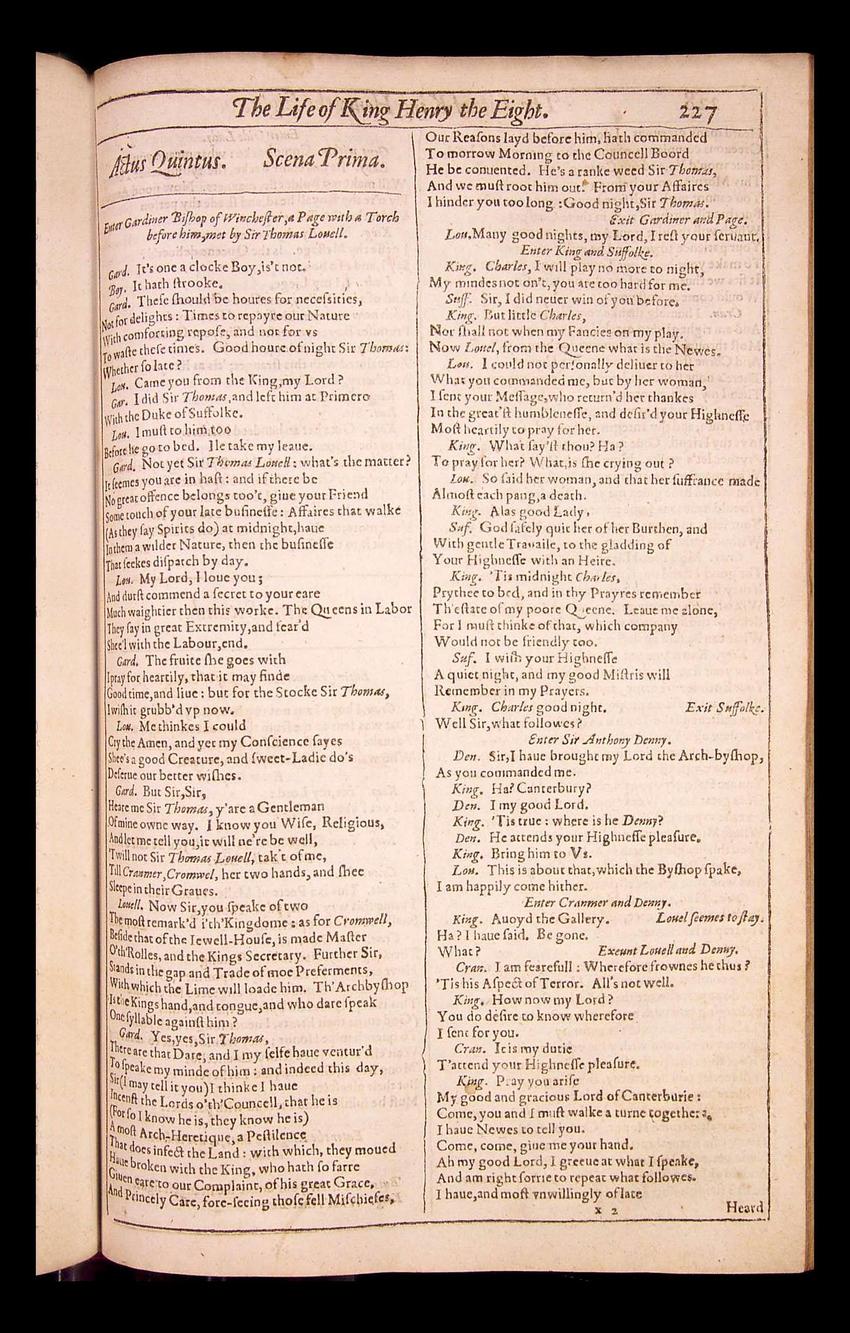 The Life of King Henry the Eight. 227
Actus Quintus. Scena Prima.
Enter Gardiner Biſhop of Wincheſter, a Page with a Torch
before him, met by Sir Thomas Louell.
Gard. It's one a clocke Boy, is't not.
Boy. It hath ſtrooke.
Gard. Theſe ſhould be houres for neceſsities,
Not for delights: Times to repayre our Nature
With comforting repoſe, and not for vs
To waſte theſe times. Good houre of night Sir Thomas:
Whether ſo late?
Lou. Came you from the King, my Lord?
Gar. I did Sir Thomas, and left him at Primero
With the Duke of Suffolke.
Lou. I muſt to him too
Before he go to bed. Ile take my leaue.
Gard. Not yet Sir Thomas Louell: what's the matter?
It ſeemes you are in haſt: and if there be
No great offence belongs too't, giue your Friend
Some touch of your late buſineſſe: Affaires that walke
(As they ſay Spirits do) at midnight, haue
In them a wilder Nature, then the buſineſſe
That ſeekes diſpatch by day.
Lou. My Lord, I loue you;
And durſt commend a ſecret to your eare
Much waightier then this worke. The Queens in Labor
They ſay in great Extremity, and fear'd
Shee'l with the Labour, end.
Gard. The fruite ſhe goes with
I pray for heartily, that it may finde
Good time, and liue: but for the Stocke Sir Thomas,
I wiſh it grubb'd vp now.
Lou. Me thinkes I could
Cry the Amen, and yet my Conſcience ſayes
Shee's a good Creature, and ſweet-Ladie do's
Deſerue our better wiſhes.
Gard. But Sir, Sir,
Heare me Sir Thomas, y'are a Gentleman
Of mine owne way. I know you Wiſe, Religious,
And let me tell you, it will ne're be well,
'Twill not Sir Thomas Louell, tak't of me,
Till Cranmer, Cromwel, her two hands, and ſhee
Sleepe in their Graues.
Louell. Now Sir, you ſpeake of two
The moſt remark'd i'th'Kingdome: as for Cromwell,
Beſide that of the Iewell-Houſe, is made Maſter
O'th'Rolles, and the Kings Secretary. Further Sir,
Stands in the gap and Trade of moe Preferments,
With which the Lime will loade him. Th'Archbyſhop
Is the Kings hand, and tongue, and who dare ſpeak
One ſyllable againſt him?
Gard. Yes, yes, Sir Thomas,
There are that Dare, and I my ſelfe haue ventur'd
To ſpeake my minde of him: and indeed this day,
Sir (I may tell it you) I thinke I haue
Incenſt the Lords o'th'Councell, that he is
(For ſo I know he is, they know he is)
A moſt Arch-Heretique, a Peſtilence
That does infect the Land: with which, they moued
Haue broken with the King, who hath ſo farre
Giuen eare to our Complaint, of his great Grace,
And Princely Care, fore-ſeeing thoſe fell Miſchiefes,
Our Reaſons layd before him, hath commanded
To morrow Morning to the Councell Boord
He be conuented. He's a ranke weed Sir Thomas,
And we muſt root him out. From your Affaires
I hinder you too long: Good night, Sir Thomas.
Exit Gardiner and Page.
Lou. Many good nights, my Lord, I reſt your ſeruant.
Enter King and Suffolke.
King. Charles, I will play no more to night,
My mindes not on't, you are too hard for me.
Suff. Sir, I did neuer win of you before.
King. But little Charles,
Nor ſhall not when my Fancies on my play.
Now Louel, from the Queene what is the Newes.
Lou. I could not perſonally deliuer to her
What you commanded me, but by her woman,
I ſent your Meſſage, who return'd her thankes
In the great'ſt humbleneſſe, and deſir'd your Highneſſe
Moſt heartily to pray for her.
King. What ſay'ſt thou? Ha?
To pray for her? What, is ſhe crying out?
Lou. So ſaid her woman, and that her ſuffrance made
Almoſt each pang, a death.
King. Alas good Lady.
Suf. God ſafely quit her of her Burthen, and
With gentle Trauaile, to the gladding of
Your Highneſſe with an Heire.
King. 'Tis midnight Charles,
Prythee to bed, and in thy Prayres remember
Th'eſtate of my poore Queene. Leaue me alone,
For I muſt thinke of that, which company
Would not be friendly too.
Suf. I wiſh your Highneſſe
A quiet night, and my good Miſtris will
Remember in my Prayers.
King. Charles good night. Exit Suffolke.
Well Sir, what followes?
Enter Sir Anthony Denny.
Den. Sir, I haue brought my Lord the Arch-byſhop,
As you commanded me.
King. Ha? Canterbury?
Den. I my good Lord.
King. 'Tis true: where is he Denny?
Den. He attends your Highneſſe pleaſure.
King. Bring him to Vs.
Lou. This is about that, which the Byſhop ſpake,
I am happily come hither.
Enter Cranmer and Denny.
King. Auoyd the Gallery. Louel ſeemes to ſtay.
Ha? I haue ſaid. Be gone.
What? Exeunt Louell and Denny.
Cran. I am fearefull: Wherefore frownes he thus?
'Tis his Aſpect of Terror. All's not well.
King. How now my Lord?
You do deſire to know wherefore
I ſent for you.
Cran. It is my dutie
T'attend your Highneſſe pleaſure.
King. Pray you ariſe
My good and gracious Lord of Canterburie:
Come, you and I muſt walke a turne together:
I haue Newes to tell you.
Come, come, giue me your hand.
Ah my good Lord, I greeue at what I ſpeake,
And am right ſorrie to repeat what followes.
I haue, and moſt vnwillingly of late
x 2 Heard